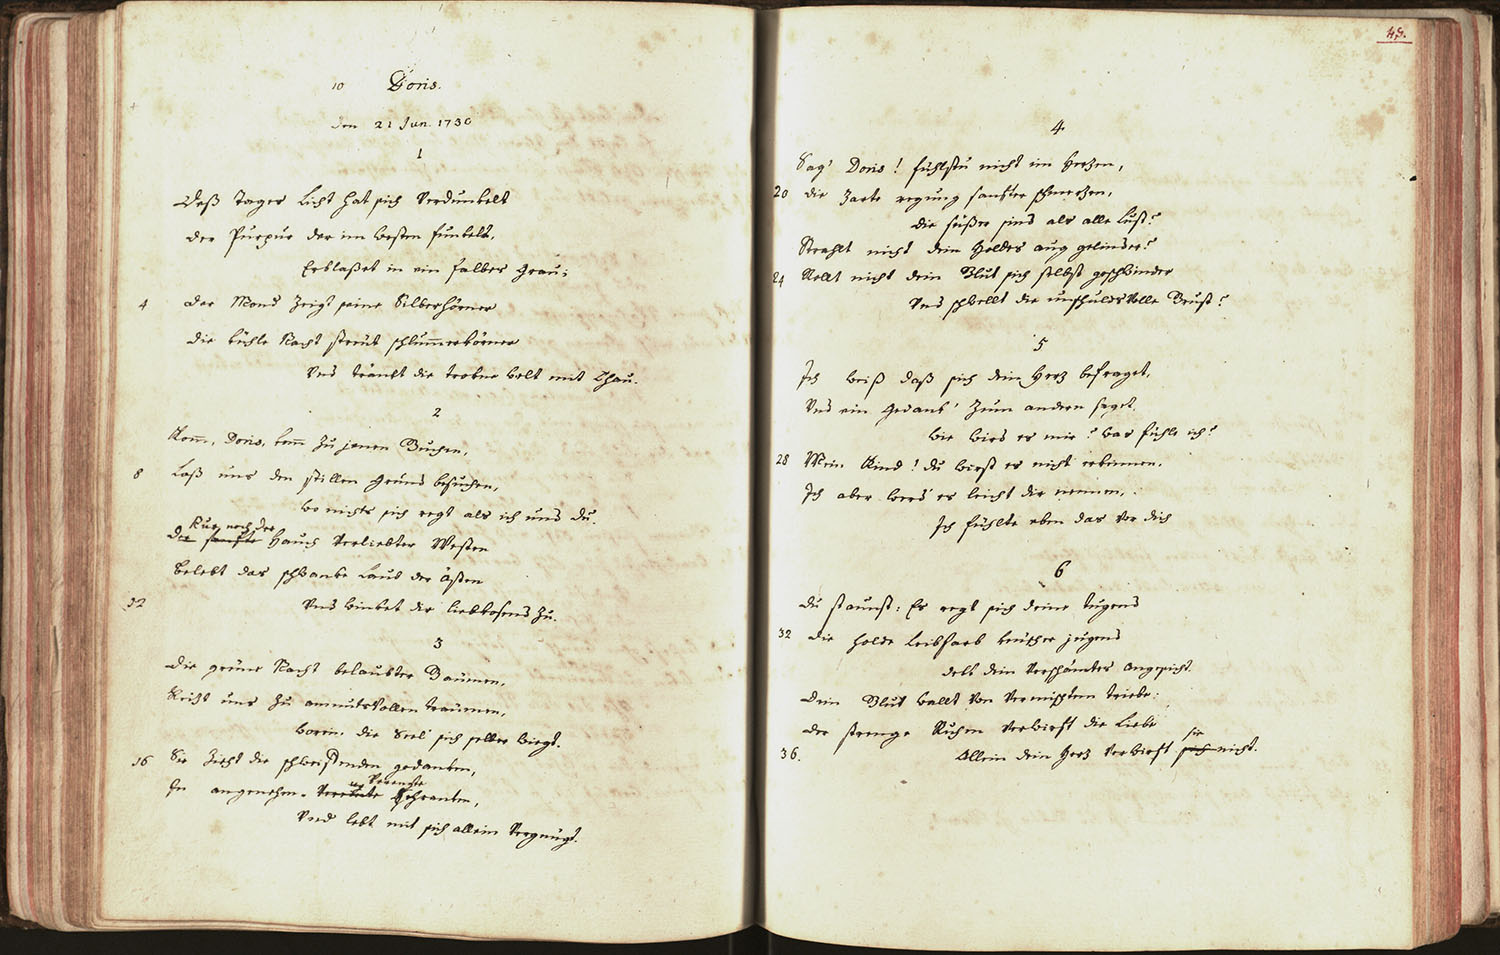 10 Doris.
den 21 Jun. 1730
1
Deß Tages Licht hat sich Verdunkelt
der Purpur der im Westen funkelt,
Erblaßet in ein falbes Grau;
4 der Mond Zeigt seine Silberhörner
die kühle Nacht streut schlummerkörner
Und tränkt die trokne Welt mit Thau.
2
Kom̅, Doris, kom̅ zu jenen Buchen,
8 Laß uns den stillen grund besuchen,
Wo nichts sich regt als ich und du.
Nur noch der
der sanfte Hauch Verliebter Westen
Belebt das schwanke Laub der Ästen
12 Und winket dir liebkosend zu.
3
die grüne Nacht belaubter Bäumen,
Reicht uns zu anmutsVollen träumen,
Worin die Seel' sich selber wiegt.
16 Sie Zieht die schweiffenden gedanken,
In angenehm schranken,
Und lebt mit sich allein Vergnügt.
45.
4
Sag' Doris! fühlstu nicht im Herzen,
20 die Zarte regung sanfter schmerzen,
die süßer sind als alle Lust?
Strahlt nicht dein Holdes aug gelinder?
24 Rollt nicht dein Blut sich selbst geschwinder
Und schwellt die unschuldsVolle Brust?
5
Ich weiß daß sich dein Herz befraget,
Und ein Gedank' Zum andern saget,
Wie wird es mir? Was fühle ich?
28 Mein Kind! du wirst es nicht erkennen,
Ich aber werd' es leicht dir nennen,
Ich fühlte eben das Vor dich
6
du staunst: Es regt sich deine tugend
32 die holde Leibfarb keuscher jugend
dekt dein Verschämtes angesicht.
Dein Blut wallt Von Vermischtem triebe:
der strenge Ruhm Verwirft die Liebe
sie
36. Allein dein Herz Verwirft sich nicht.